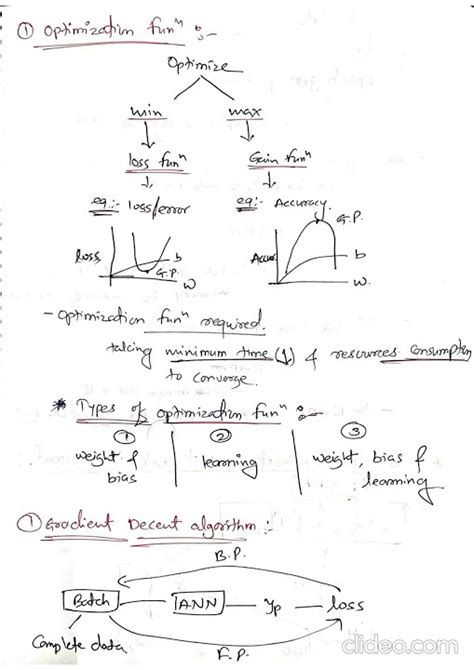 ① Optimization funⁿ :-
Optimize
min max
loss funⁿ Gain funⁿ
eg:- loss/error eg:- Accuracy.
G.P.
loss b Accu b
G.P.
w w
- Optimization funⁿ required.
taking minimum time (↓) & resources consumption
to converge.
* Types of optimization funⁿ :-
① ② ③
weight & learning weight, bias &
bias learning
① Gradient Decent algorithm :-
B.P.
Batch ANN yp loss
Complete data F.P.
clideo.com